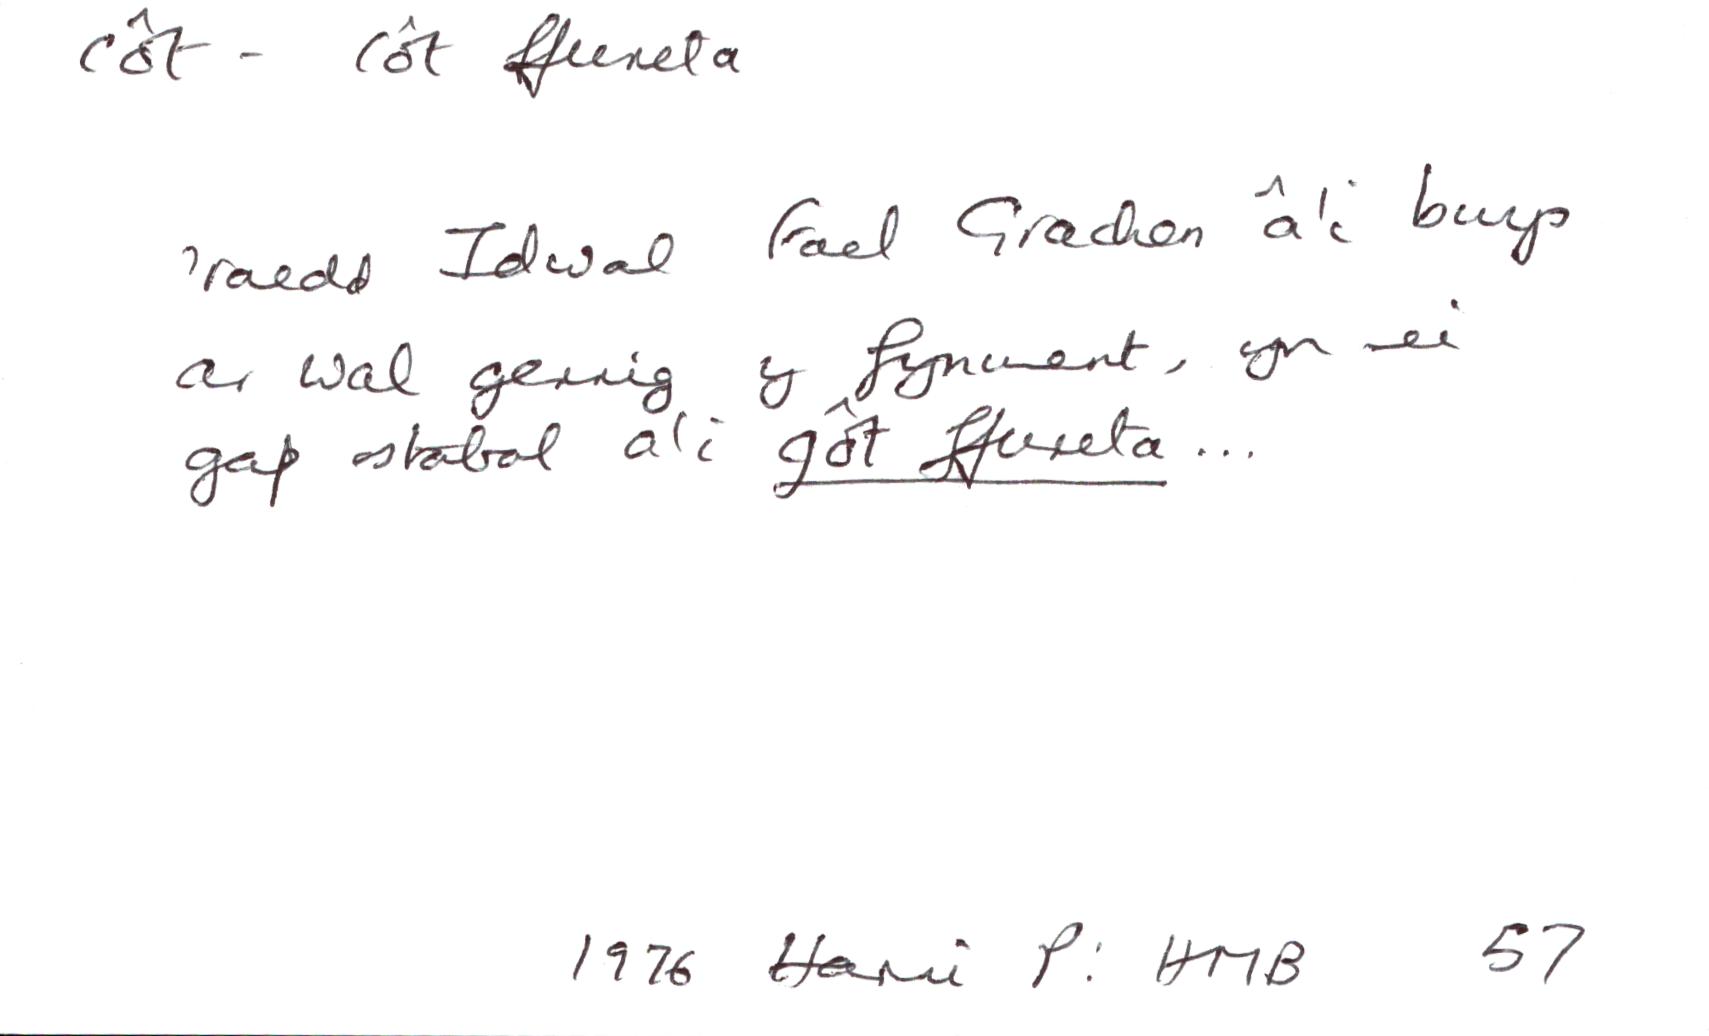 côt - côt ffureta
'roedd Idwal Fael Grachen â'i bwys
ar wal gerrig y fynwent, yn ei
gap stabal a'i gôt ffureta...
1976 Harri P: HMB 57